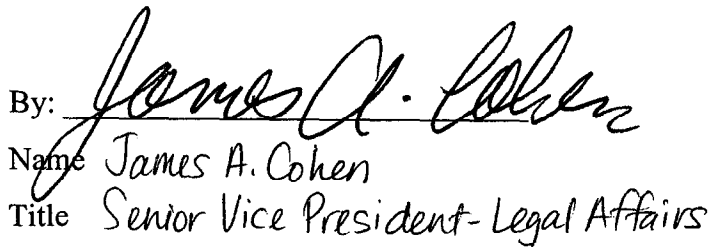 By: James A. Cohen
Name James A. Cohen
Title Senior Vice President-Legal Affairs